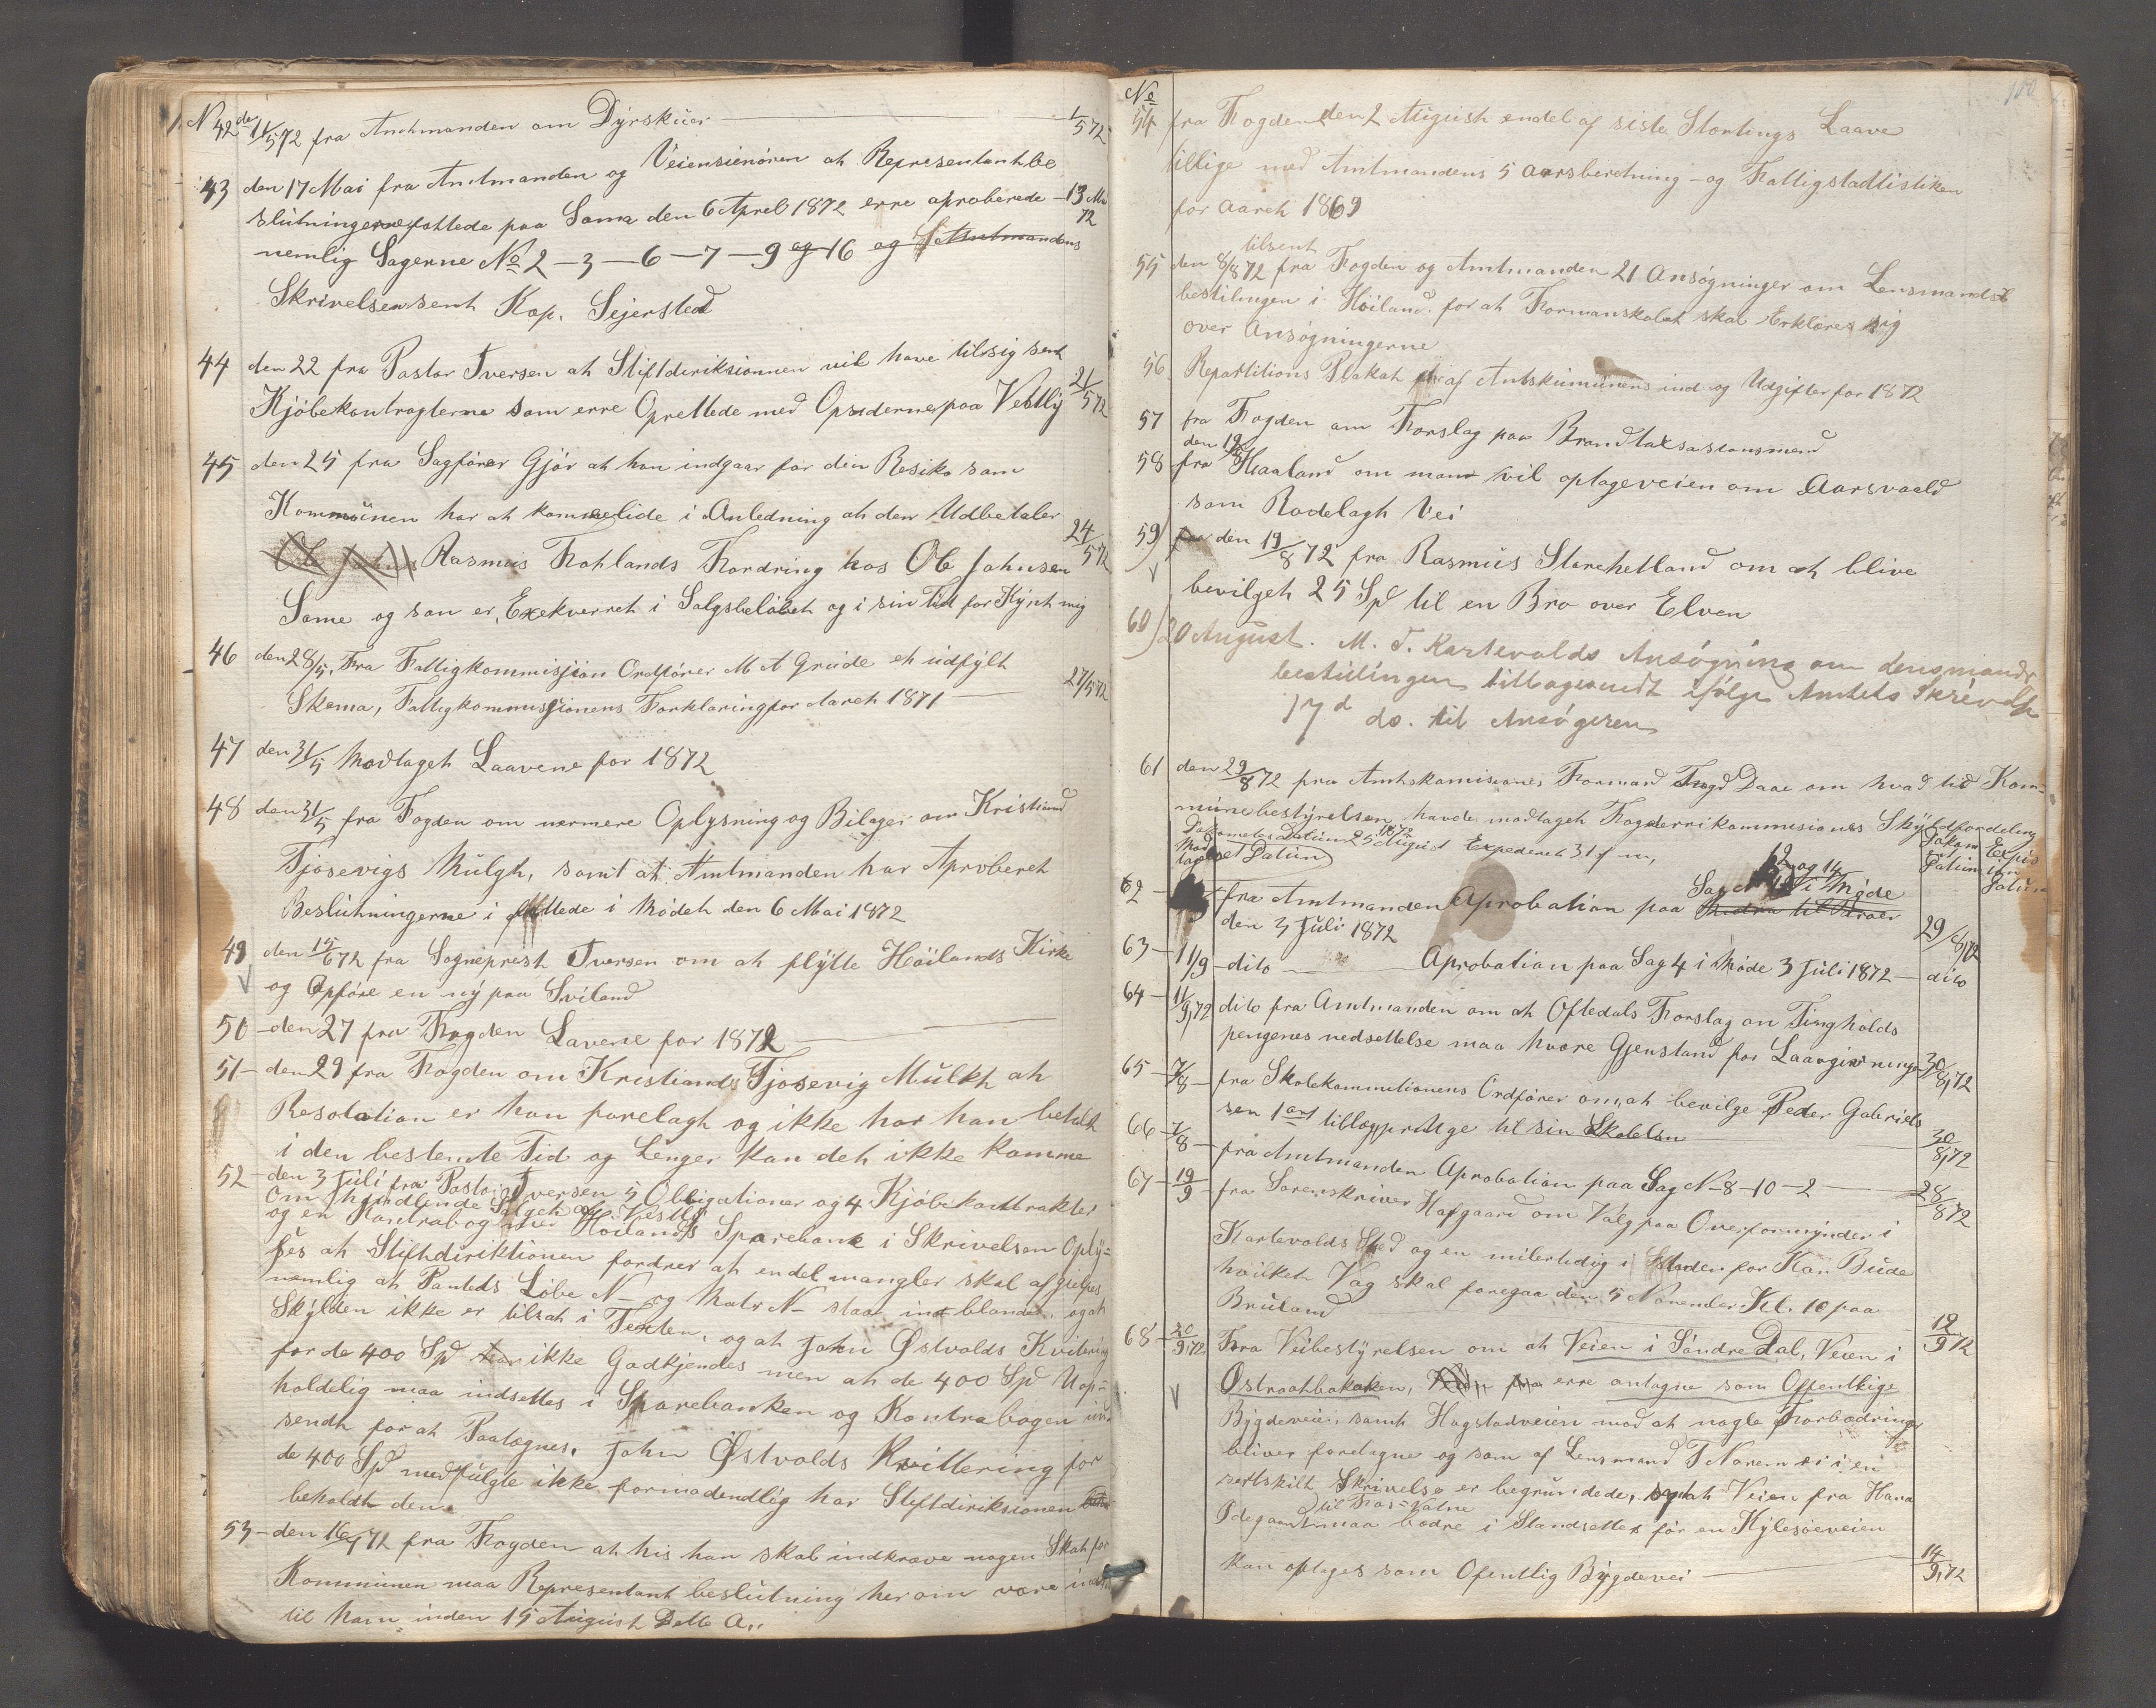 N 42 den 11/5 72 fra Amtmanden om Dyrskuer 1/5 72
43 den 17 Mai fra Amtmanden og Veiensienøren at Representantbe
slutningerne fattede paa Soma den 6 Aprel 1872 erre aproberede 13 Mai 72
nemlig Sagerne No 2 – 3 – 6 – 7 – 9 og 16 og Amtmandens
Skrivelse sent Kap. Sejersted
44 den 22 fra Pastor Iversen at Stiftdiriksionnen vil have tilsig sent
Kjöbekontragterne som erre Oprettede med Opsiderne paa Vestly 21/5 72
45 den 25 fra Sagfører Gjör at han indgaar for din Resiko som
Kommünen har at komme lide i Anledning at den Udbetaler
Rasmüs Fohlands Fordring hos Ole Johnsen 24/5 72
Some og son er Exekverret i Salgsbeløbet og i sin Tid forkynt mig
46 den 28/5, Fra Fattigkommisjion Ordfører M A Grude et üdfylt
Skema, Fattigkommissjionens Forklaring for Aaret 1871 27/5 72
47 den 31/5 Modtaget Laavene for 1872
48 den 31/5 fra Fogden om nermere Oplysning og Bilager om Kristiand
Tjosevigs Mülgt, samt at Amtmanden har Aproberet
Beslutningerne i fattede i Mödet den 6 Mai 1872
49 den 15/6 72 fra Sogneprest Iversen om at flytte Höilands Kirke
og Opføre en ny paa Sviland
50 den 27 fra Fogden Lavene for 1872
51 – den 29 fra Fogden om Kristiands Tjosevig Mülkt at
Resolution er han forelagt og ikke har han betalt
i den bestemte Tid og Lenger kan det ikke komme
52 – den 3 Jüli fra Pastor Iversen 5 Obligationer og 4 Kjöbekontrakter
om Salget af Vestly
og en Kontrabog med Höilands Sparebank i Skrivelsen Oply=
ses at Stiftdiriktionen fordrer at endel mangler skal afgjelpes
nemlig at Pantets Löbe N– og Matr N– staar int blandet, og at
Skylden ikke er tilsat i Texten, og at John Østvolds Kvitering
for de 400 Spd ikke Godkjendes men at de 400 Spd Uop=
holdelig maa indsettes i Sparebanken og Kontrabogen ind
sendt for at Paategnes. John Østvolds Kvittering for
de 400 Spd medfulgte ikke formodendtlig har Stiftdiriksionen
beholdt den
53 – den 16/7 72 fra Fogden at his han skal indkræve nogen Skat for
Kommünen maa Representant beslutning herom være
til ham inden 15 August Dette A..
100
No
54 fra Fogden den 2 August endel af siste Stortings Laave
tillige med Amtmandens 5 aarsberetning og Fattigstadtistiken
for aaret 1869
tilsent
55 den 8/8 72 fra Fogden og Amtmanden 21 Ansøgninger om Lensmands
bestilingen i Höiland for at Formanskabet skal Erklære sig
over Ansøgningerne
56 Repartitions Plakat af Amtskümünens ind og Udgifter for 1872
57 fra Fogden om Forslag paa Brandtaxsasionsmend
den 19/8
58 fra Haaland om man vil optage veien om Aarsvaald
som Rodelagt Vei
59 den 19/8 72 fra Rasmüs Storehetland om at blive
bevilget 25 Spd til en Bro over Elven
60 20 August. M. T. Kartevolds Ansøgning om lensmands
bestillingen tilbagesendt ifølge Amtets Skrivelse
17d ds. til Ansøgeren
61 den 29/8 72 fra Amtskomisions Formand Fogd Daae om hvad tid Kom=
münebestyrelsen havde modtaget Fogderrikommisiones Skyldfordeling
Dokumetes Datüm 25 August 1872 Expederet 31 f m,
Mod taget Datüm Dokom ent Datüm Expe tion Datüm
62 – fra Amtmanden Aprobation paa Sag 12 og 14 i Møde
den 3 Juli 1872 29/8 72
63 – 11/9 – dito – Aprobation paa Sag 4 i Møde 3 Juli 1872 – dito
64 – 11/9 72 dito fra Amtmanden om at Oftedals Forslag on Tingholds
pengenes nedsettelse maa hvore Gjenstand for Laavgivninga 30/8 72
65 – 7/8 – fra Skolekommitionens Ordfører om, at bevilge Peder Gabriels
sen 1 art tillægg til sin Skoleløn 30/8 72
66 – 7/8 – fra Amtmanden Aprobation paa Sag N– 8–10–2 – 28/8 72
67 – 19/9 – fra Sorenskriver Hafgaard om Valg paa Overformynder i
Kartevolds Sted og en milertidig i Steden for Kan Bude
hvilket Vag skal foregaa den 5 November Kl. 10 paa
Bruland 12/9 72
68 – 20/9 72 Fra Veibestyrelsen om at Veien i Søndre Dal, Veien i
Østraatbakaken, erre antagne som Offentlige
Bygdeveie, samt Hogstadveien mod at nogle Forbædringer
bliver foretagne og som af Lensmand T Norem i en
sertskilt Skrivelse er begründede, og at Veien fra Hana
til Fos=Vatne
Ødegaard maa bædre i Standsettes før en Kylesøeveien
kan optages som Ofentlig Bygdevei 14/9 72